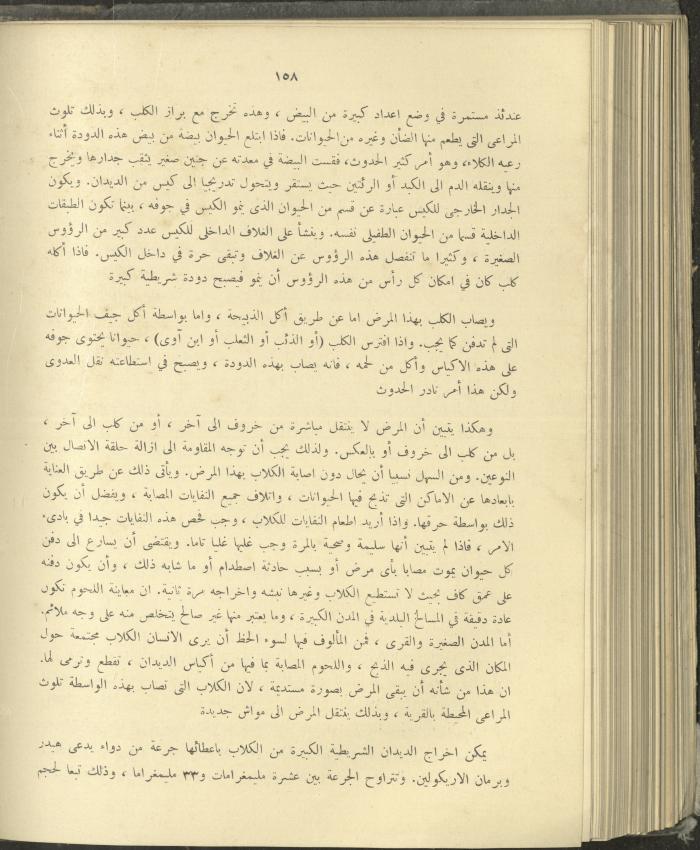 ١٥٨
عندئذ مستمرة في وضع اعداد كبيرة من البيض ، وهذه تخرج مع براز الكلب ، وبذلك تلوث
المراعى التى يطعم منها الضأن وغيره من الحيوانات. فاذا ابتلع الحيوان بيضة من بيض هذه الدودة أثناء
رعيه الكلاء، وهو أمر كثير الحدوث، فقست البيضة في معدته عن جنين صغير يثقب جدارها ويخرج
منها وينقله الدم الى الكبد أو الرئتين حيث يستقر ويتحول تدريجيا الى كيس من الديدان. ويكون
الجدار الخارجى للكيس عبارة عن قسم من الحيوان الذى ينمو الكيس في جوفه ، بينما تكون الطبقات
الداخلية قسما من الحيوان الطفيلى نفسه. وينشأ على الغلاف الداخلى للكيس عدد كبير من الرؤوس
الصغيرة ، وكثيرا ما تنفصل هذه الرؤوس عن الغلاف وتبقى حرة في داخل الكيس. فاذا أكله
كلب كان في امكان كل رأس من هذه الرؤوس أن ينمو فيصبح دودة شريطية كبيرة
ويصاب الكلب بهذا المرض اما عن طريق أكل الذبيحة ، واما بواسطة أكل جيف الحيوانات
التى لم تدفن كما يجب. واذا افترس الكلب (أو الذئب أو الثعلب أو ابن آوى) ، حيوانا يحتوى جوفه
على هذه الاكياس وأكل من لحمه ، فانه يصاب بهذه الدودة ، ويصبح في استطاعته نقل العدوى
ولكن هذا أمر نادر الحدوث
وهكذا يتبين أن المرض لا ينتقل مباشرة من خروف الى آخر ، أو من كلب الى آخر ،
بل من كلب الى خروف أو بالعكس. ولذلك يجب أن توجه المقاومة الى ازالة حلقة الاتصال بين
النوعين. ومن السهل نسبيا أن يحال دون اصابة الكلاب بهذا المرض. ويأتى ذلك عن طريق العناية
بابعادها عن الاماكن التى تذبح فيها الحيوانات ، واتلاف جميع النفايات المصابة ، ويفضل أن يكون
ذلك بواسطة حرقها. واذا أريد اطعام النفايات للكلاب ، وجب فحص هذه النفايات جيدا في بادىء
الامر ، فاذا لم يتبين أنها سليمة وصحية بالمرة وجب غليها غليا تاما. ويقتضى أن يسارع الى دفن
كل حيوان يموت مصابا بأى مرض أو بسبب حادثة اصطدام أو ما شابه ذلك ، وأن يكون دفنه
على عمق كاف بحيث لا تستطيع الكلاب وغيرها نبشه واخراجه مرة ثانية. ان معاينة اللحوم تكون
عادة دقيقة في المسالخ البلدية في المدن الكبيرة ، وما يعتبر منها غير صالح يتخلص منه على وجه ملائم.
أما المدن الصغيرة والقرى ، فمن المألوف فيها لسوء الحظ أن يرى الانسان الكلاب مجتمعة حول
المكان الذى يجرى فيه الذبح ، واللحوم المصابة بما فيها من أكياس الديدان ، تقطع وترمى لها.
ان هذا من شأنه أن يبقى المرض بصورة مستديمة ، لان الكلاب التى تصاب بهذه الواسطة تلوث
المراعى المحيطة بالقرية ، وبذلك ينتقل المرض الى مواش جديدة
يمكن اخراج الديدان الشريطية الكبيرة من الكلاب باعطائها جرعة من دواء يدعى هيدر
وبرمان الاريكولين. وتتراوح الجرعة بين عشرة مليمغرامات و٣٣ مليمغراما ، وذلك تبعا لحجم